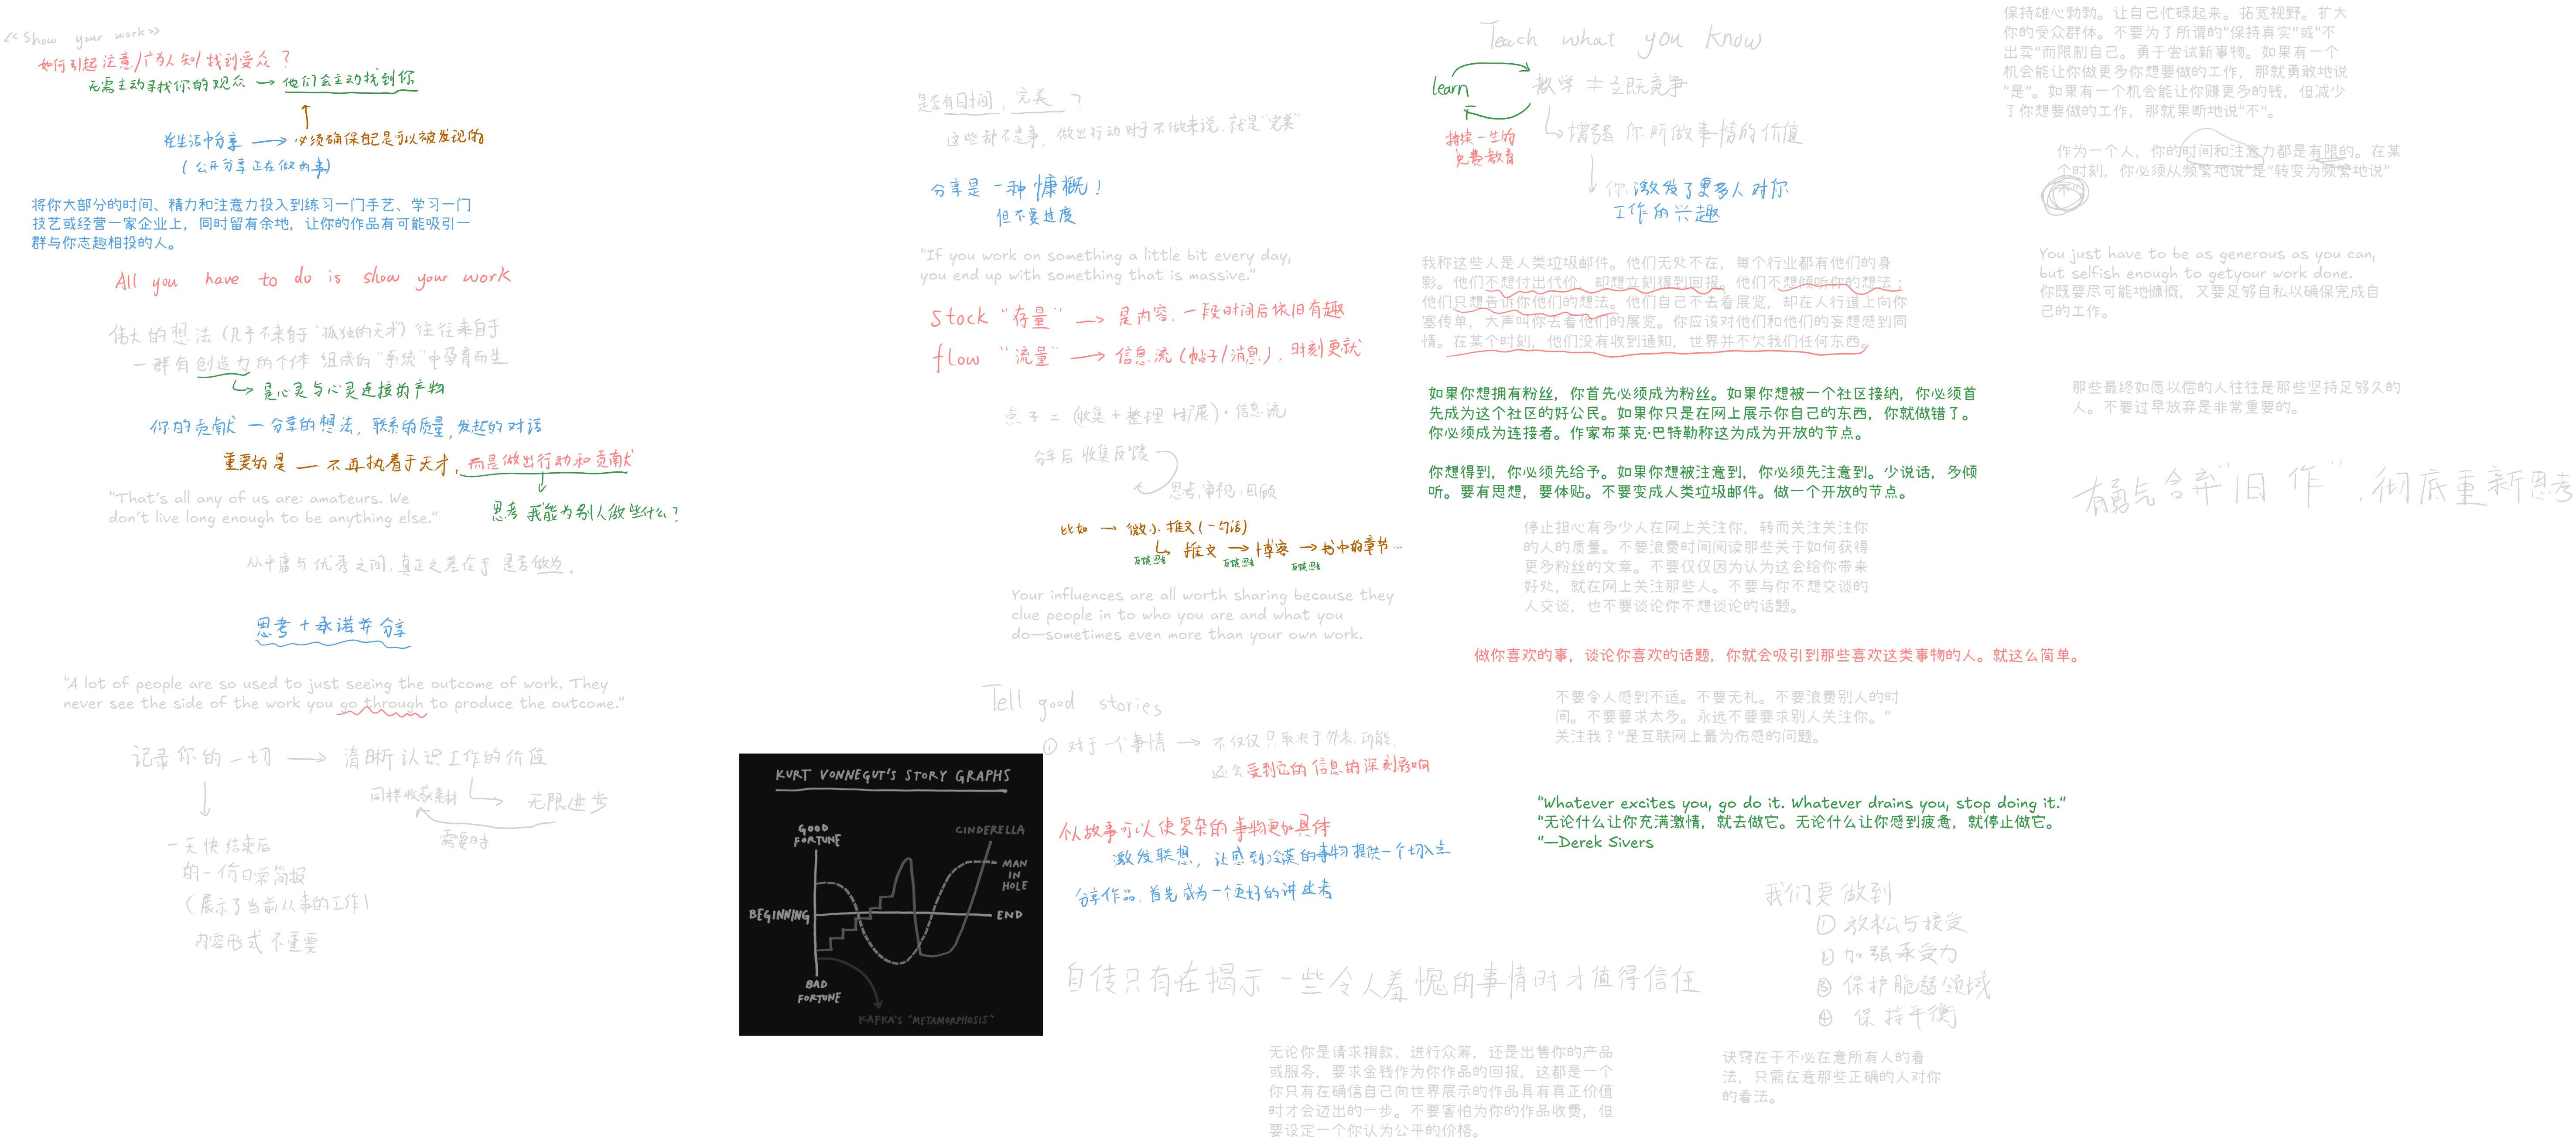 <<Show your work>>
如何引起注意/广为人知/找到受众？
无需主动寻找你的观众 → 他们会主动找到你
在生活中分享 → 必须确保自己是可以被发现的
(公开分享正在做的事)
将你大部分的时间、精力和注意力投入到练习一门手艺、学习一门
技艺或经营一家企业上，同时留有余地，让你的作品有可能吸引一
群与你志趣相投的人。
All you have to do is show your work
伟大的想法（几乎不来自于"孤独的天才）往往来自于
一群有创造力的个体 组成的"系统"中孕育而生
是心灵与心灵连接的产物
你的贡献 — 分享的想法，联系的质量，发起的对话
重要的是 — 不再执着于天才，而是做出行动和贡献
"That's all any of us are: amateurs. We
don't live long enough to be anything else."
思考 我能为别人做些什么？
从平庸与优秀之间，真正之差在于 是否做为。
思考＋承诺并分享
"A lot of people are so used to just seeing the outcome of work. They
never see the side of the work you go through to produce the outcome."
记录你的一切 → 清晰认识工作的价值
同样收获素材
无限进步
需要时
一天快结束后
的一份日常简报
（展示了当前从事的工作）
内容形式不重要
KURT VONNEGUT'S STORY GRAPHS
GOOD
FORTUNE
CINDERELLA
MAN
IN
HOLE
BEGINNING
END
BAD
FORTUNE
KAFKA'S "METAMORPHOSIS"
是否有时间，完美？
这些都不是事，做出行动对于不做来说，就是"完美"
分享是一种慷慨！
但不要过度
"If you work on something a little bit every day,
you end up with something that is massive."
Stock "存量" → 是内容，一段时间后依旧有趣
flow "流量" → 信息流（帖子/消息），时刻更新
点子 = (收集＋整理 扩展)·信息流
分享后 收集反馈
思考，审视，回顾
比如 → 微小推文(一句话)
推文 → 博客 → 书中的章节...
反馈思考 反馈思考 反馈思考
Your influences are all worth sharing because they
clue people in to who you are and what you
do—sometimes even more than your own work.
Tell good stories
① 对于一个事情 → 不仅仅只取决于外表、功能，
还会受到它的信息的深刻影响
似故事可以使复杂的事物更加具体
激发联想，让感到冷漠的事物提供一个切入点
分享作品，首先成为一个更好的讲述者
自传只有在揭示一些令人羞愧的事情时才值得信任
无论你是请求捐款、进行众筹，还是出售你的产品
或服务，要求金钱作为你作品的回报，这都是一个
你只有在确信自己向世界展示的作品具有真正价值
时才会迈出的一步。不要害怕为你的作品收费，但
要设定一个你认为公平的价格。
Teach what you know
learn
教学 ≠ 立既竞争
持续一生的
免费教育
增强 你所做事情的价值
你激发了更多人对你
工作的兴趣
我称这些人是人类垃圾邮件。他们无处不在，每个行业都有他们的身
影。他们不想付出代价，却想立刻得到回报。他们不想倾听你的想法；
他们只想告诉你他们的想法。他们自己不去看展览，却在人行道上向你
塞传单，大声叫你去看他们的展览。你应该对他们和他们的妄想感到同
情。在某个时刻，他们没有收到通知，世界并不欠我们任何东西。
如果你想拥有粉丝，你首先必须成为粉丝。如果你想被一个社区接纳，你必须首
先成为这个社区的好公民。如果你只是在网上展示你自己的东西，你就做错了。
你必须成为连接者。作家布莱克·巴特勒称这为成为开放的节点。
你想得到，你必须先给予。如果你想被注意到，你必须先注意到。少说话，多倾
听。要有思想，要体贴。不要变成人类垃圾邮件。做一个开放的节点。
停止担心有多少人在网上关注你，转而关注关注你
的人的质量。不要浪费时间阅读那些关于如何获得
更多粉丝的文章。不要仅仅因为认为这会给你带来
好处，就在网上关注那些人。不要与你不想交谈的
人交谈，也不要谈论你不想谈论的话题。
做你喜欢的事，谈论你喜欢的话题，你就会吸引到那些喜欢这类事物的人。就这么简单。
不要令人感到不适。不要无礼。不要浪费别人的时
间。不要要求太多。永远不要要求别人关注你。"
关注我？"是互联网上最为伤感的问题。
"Whatever excites you, go do it. Whatever drains you, stop doing it."
"无论什么让你充满激情，就去做它。无论什么让你感到疲惫，就停止做它。
"—Derek Sivers
我们要做到
① 放松与接受
② 加强承受力
③ 保护脆弱领域
④ 保持平衡
诀窍在于不必在意所有人的看
法，只需在意那些正确的人对你
的看法。
保持雄心勃勃。让自己忙碌起来。拓宽视野。扩大
你的受众群体。不要为了所谓的"保持真实"或"不
出卖"而限制自己。勇于尝试新事物。如果有一个
机会能让你做更多你想要做的工作，那就勇敢地说
"是"。如果有一个机会能让你赚更多的钱，但减少
了你想要做的工作，那就果断地说"不"。
作为一个人，你的时间和注意力都是有限的。在某
个时刻，你必须从频繁地说"是"转变为频繁地说"
不"
You just have to be as generous as you can,
but selfish enough to getyour work done.
你既要尽可能地慷慨，又要足够自私以确保完成自
己的工作。
那些最终如愿以偿的人往往是那些坚持足够久的
人。不要过早放弃是非常重要的。
有勇气舍弃"旧作"，彻底重新思考